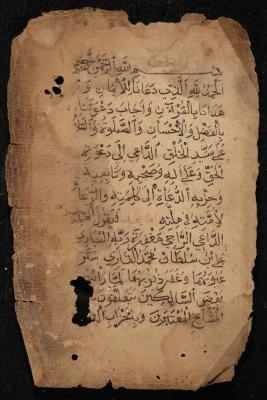 بسم الله الرحمن الرحيم
الحمد لله الذي دعانا للايمان و
هدانا بالقرآن واجاب دعوتنا
بالفضل والاحسان والصلوة والسلام
على سيد الخلق الداعي الى دعوة
الحق وعلى اله وصحبه وتابعيه
وحزبه الدعاة الى كلمته والرعاة
لأمته في ملته اما بعد فيقول
الداعي الراجي مغفرة ربه الباري
علي بن سلطان محمد القاري ستر
عيوبهما وغفر ذنوبهما لما رأيت
بعض السالكين يتعلقون
المشايخ المعتبرين وباحزاب